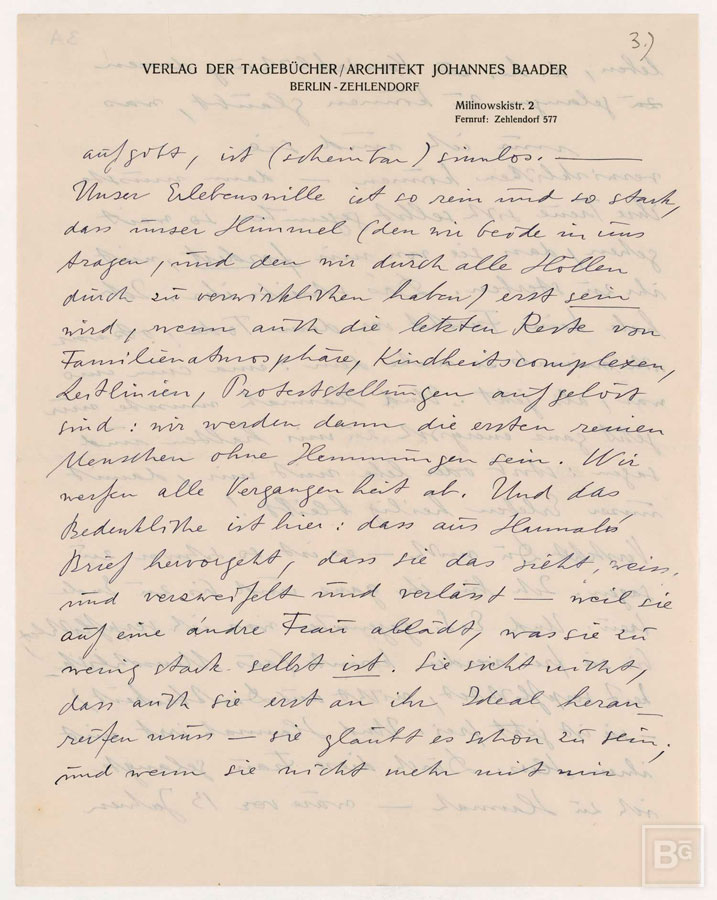 3.)
VERLAG DER TAGEBÜCHER/ARCHITEKT JOHANNES BAADER
BERLIN-ZEHLENDORF
Milinowskistr. 2
Fernruf: Zehlendorf 577
aufgibt, ist (scheinbar) sinnlos. —
Unser Erlebenswille ist so rein und so stark,
dass unser Himmel (den wir beide in uns
tragen, und den wir durch alle Höllen
durch zu verwirklichen haben) erst sein
wird, wenn auch die letzten Reste von
Familienatmosphäre, Kindheitscomplexen,
Leitlinien, Proteststellungen aufgelöst
sind: wir werden dann die ersten reinen
Menschen ohne Hemmungen sein. Wir
werfen alle Vergangenheit ab. Und das
Bedenkliche ist hier: dass aus Hannahs
Brief hervorgeht, dass sie das sieht, weiss,
und verzweifelt und verlässt — weil sie
auf eine andre Frau ablädt, was sie zu
wenig stark selbst ist. Sie sieht nicht,
dass auch sie erst an ihr Ideal heran-
reifen muss — sie glaubt es schon zu sein;
und wenn sie nicht mehr mit mir
BG